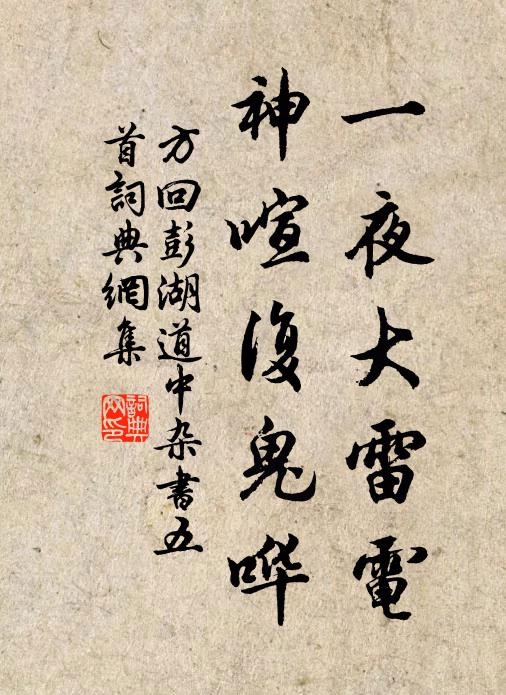 一夜大雷電
神喧復鬼哗
方回彭湖道中杂書五
首詞典網集
詞典網印